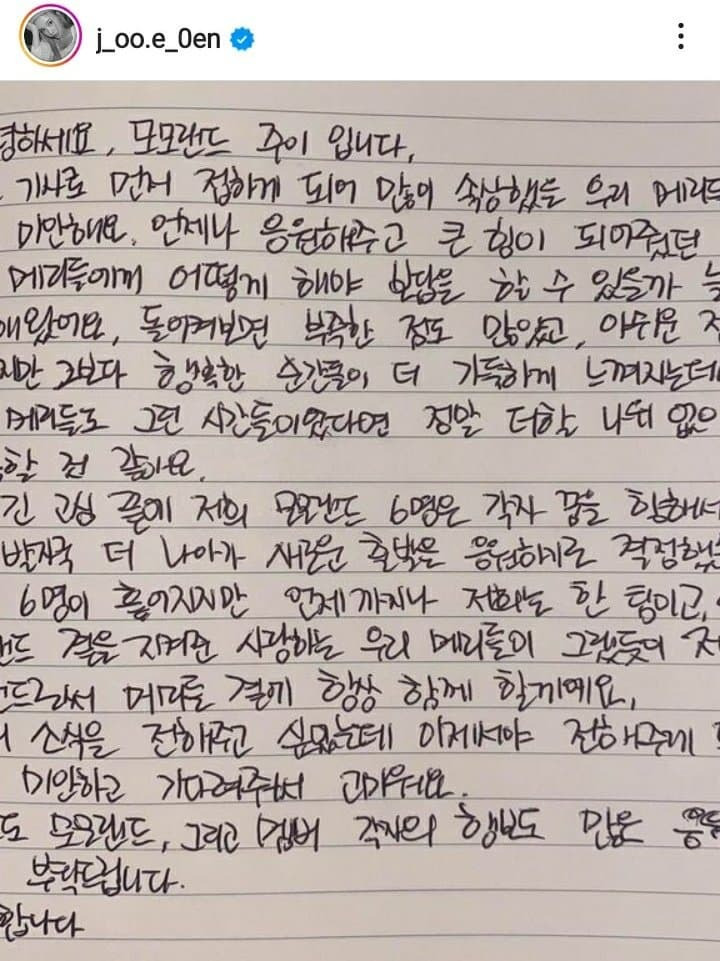 j_oo.e_0en
녕하세요, 모모랜드 주이 입니다.
기사로 먼저 접하게 되어 많이 속상했을 우리 메리들
미안해요. 언제나 응원해주고 큰 힘이 되어줬던
메리들에게 어떻게 해야 보답을 할 수 있을까 늘
해왔어요, 돌이켜보면 부족한 점도 많았고, 아쉬운
지만 그보다 행복한 순간들이 더 가득하게 느껴지는데
메리들도 그런 시간들이었다면 정말 더할 나위 없으
할 것 같아요.
긴 고심 끝에 저희 모모랜드 6명은 각자 꿈을 향해서
발자국 더 나아가 새로운 출발을 응원하기로 결정했
6명이 흩어지지만 언제까지나 저희는 한 팀이고,
랜드 곁을 지켜준 사랑하는 우리 메리들이 그랬듯이 저
랜드로서 메리들 곁에 항상 함께 할게요,
소식을 전해주고 싶었는데 이제서야 전해주게
미안하고 기다려주셔서 고마워요.
도 모모랜드, 그리고 멤버 각자의 행보도 많은 응원
부탁드립니다.
합니다